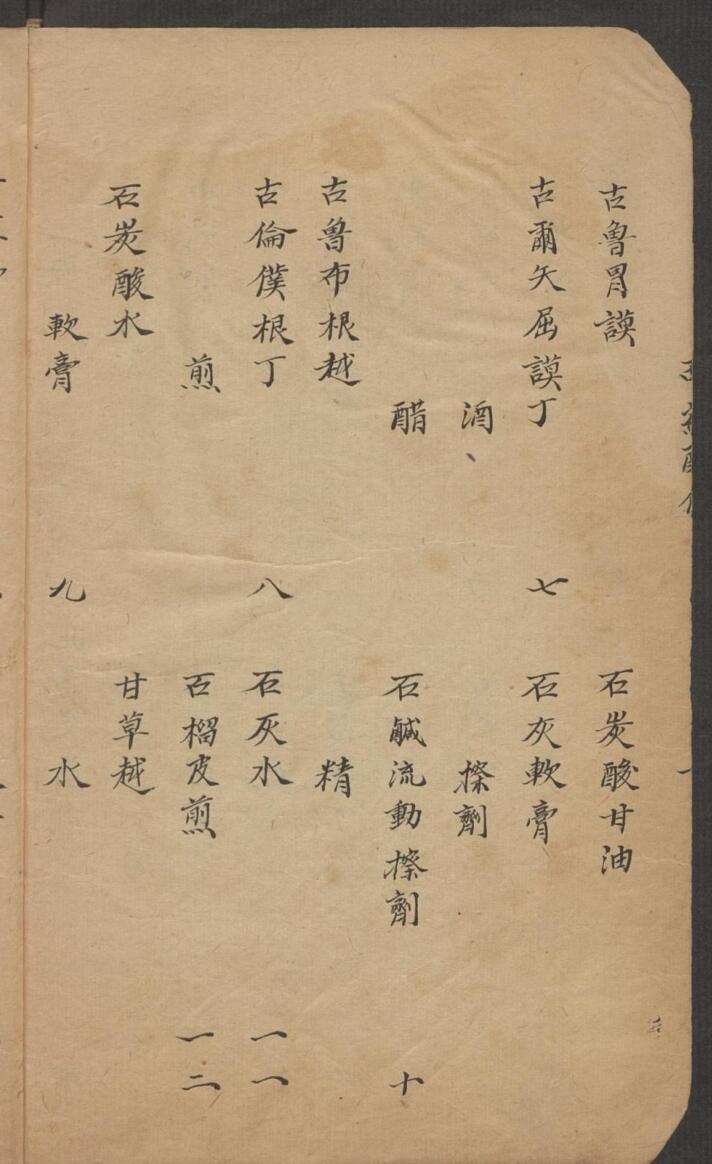 古魯胃謨
古爾矢屈謨丁 七
酒
醋
古魯布根越
古倫僕根丁 八
煎
石炭酸水
軟膏 九
石炭酸甘油
石灰軟膏
擦劑
石鹹流動擦劑 十
精
石灰水 一一
石榴皮煎 一二
甘草越
水